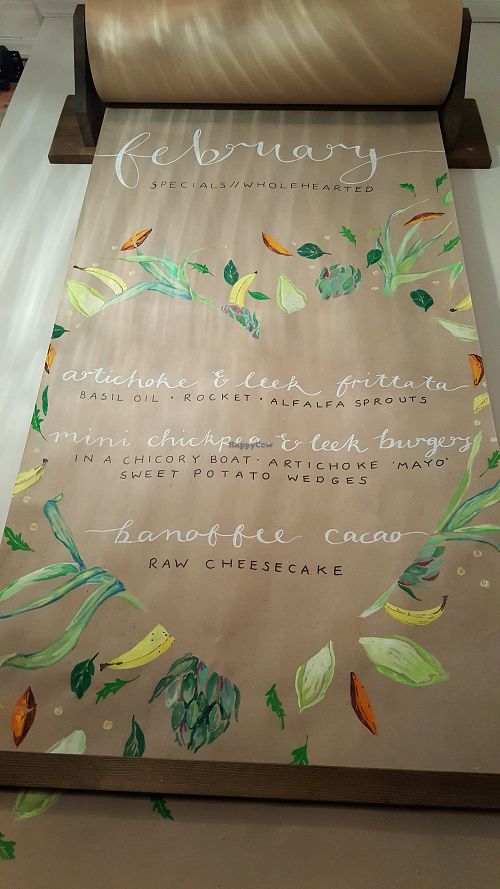 february
SPECIALS//WHOLEHEARTED
artichoke & leek frittata
BASIL OIL · ROCKET · ALFALFA SPROUTS
mini chickpea & leek burgers
HappyCow
IN A CHICORY BOAT · ARTICHOKE 'MAYO'
SWEET POTATO WEDGES
banoffee cacao
RAW CHEESECAKE